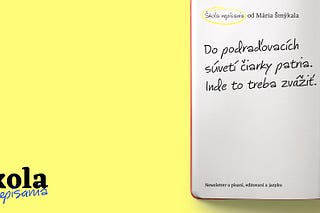 Škola nepísania od Mária Šmýkala
Do podraďovacích
súvetí čiarky patria.
Inde to treba zvážiť.
kola
episania
Newsletter o písaní, editovaní a jazyku